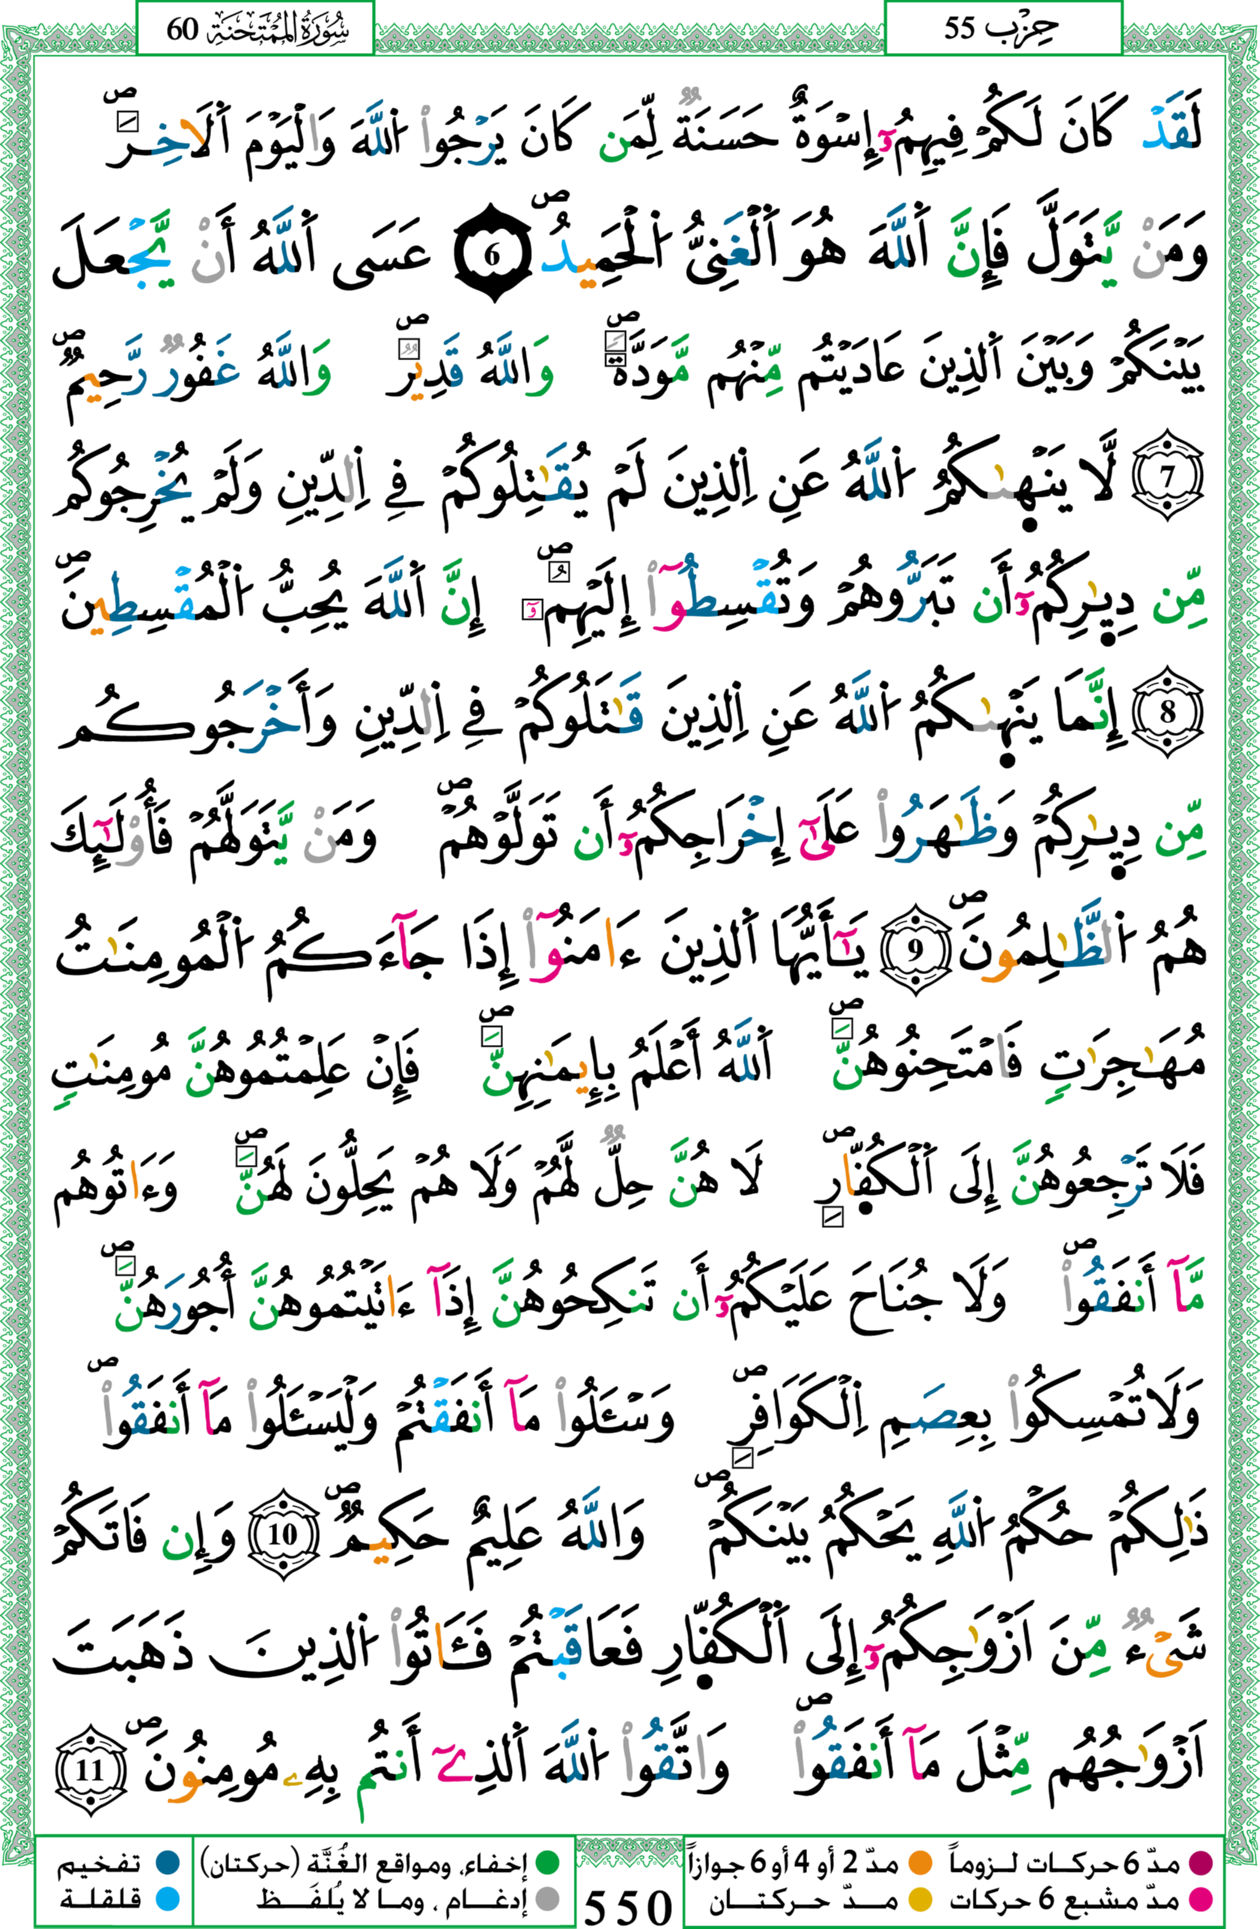 سُورَةُ المُمْتَحَنَة 60
حِزْب 55
لَقَدْ كَانَ لَكُمْ فِيهِمُۥٓ إِسْوَةٌ حَسَنَةٌ لِّمَن كَانَ يَرْجُوا۟ اُ۬للَّهَ وَالْيَوْمَ اَ۬لَاخِرَۖ
وَمَنْ يَّتَوَلَّ فَإِنَّ اَ۬للَّهَ هُوَ اَ۬لْغَنِىُّ اُ۬لْحَمِيدُۖ 6 عَسَى اَ۬للَّهُ أَنْ يَّجْعَلَ
بَيْنَكُمْ وَبَيْنَ اَ۬لذِينَ عَادَيْتُم مِّنْهُم مَّوَدَّةٗۖ وَاللَّهُ قَدِيرٞۖ وَاللَّهُ غَفُورٞ رَّحِيمٞۖ
7 لَّا يَنْه۪يٰكُمُ اُ۬للَّهُ عَنِ اِ۬لذِينَ لَمْ يُقَٰتِلُوكُمْ فِے اِ۬لدِّينِ وَلَمْ يُخْرِجُوكُم
مِّن دِيٰ۪رِكُمُۥٓ أَن تَبَرُّوهُمْ وَتُقْسِطُوٓا۟ إِلَيْهِمُۥٓۖ إِنَّ اَ۬للَّهَ يُحِبُّ اُ۬لْمُقْسِطِينَۖ
8 إِنَّمَا يَنْه۪يٰكُمُ اُ۬للَّهُ عَنِ اِ۬لذِينَ قَٰتَلُوكُمْ فِے اِ۬لدِّينِ وَأَخْرَجُوكُم
مِّن دِيٰ۪رِكُمْ وَظَٰهَرُوا۟ عَلَىٰٓ إِخْرَاجِكُمُۥٓ أَن تَوَلَّوْهُمْۖ وَمَنْ يَّتَوَلَّهُمْ فَأُو۟لَٰٓئِكَ
هُمُ اُ۬لظَّٰلِمُونَۖ 9 يَٰٓأَيُّهَا اَ۬لذِينَ ءَامَنُوٓا۟ إِذَا جَآءَكُمُ اُ۬لْمُومِنَٰتُ
مُهَٰجِرَٰتٖ فَامْتَحِنُوهُنَّۖ اَ۬للَّهُ أَعْلَمُ بِإِيمَٰنِهِنَّۖ فَإِنْ عَلِمْتُمُوهُنَّ مُومِنَٰتٖ
فَلَا تَرْجِعُوهُنَّ إِلَى اَ۬لْكُفّ۪ارِۖ لَا هُنَّ حِلّٞ لَّهُمْ وَلَا هُمْ يَحِلُّونَ لَهُنَّۖ وَءَاتُوهُم
مَّآ أَنفَقُوا۟ۖ وَلَا جُنَاحَ عَلَيْكُمُۥٓ أَن تَنكِحُوهُنَّ إِذَآ ءَاتَيْتُمُوهُنَّ أُجُورَهُنَّۖ
وَلَا تُمْسِكُوا۟ بِعِصَمِ اِ۬لْكَوَافِرِۖ وَسْـَٔلُوا۟ مَآ أَنفَقْتُمْ وَلْيَسْـَٔلُوا۟ مَآ أَنفَقُوا۟ۖ
ذَٰلِكُمْ حُكْمُ اُ۬للَّهِ يَحْكُمُ بَيْنَكُمْۖ وَاللَّهُ عَلِيمٌ حَكِيمٞۖ 10 وَإِن فَاتَكُمْ
شَىْءٞ مِّنَ اَزْوَٰجِكُمُۥٓ إِلَى اَ۬لْكُفّ۪ارِ فَعَاقَبْتُمْ فَـَٔاتُوا۟ اُ۬لذِينَ ذَهَبَتَ
اَزْوَٰجُهُم مِّثْلَ مَآ أَنفَقُوا۟ۖ وَاتَّقُوا۟ اُ۬للَّهَ اَ۬لذِےٓ أَنتُم بِهِۦ مُومِنُونَۖ 11
مدّ 6 حركات لـزوماً
مدّ 2 أو 4 أو 6 جوازاً
مدّ مشبع 6 حركات
مدّ حركتان
إخفاء، ومواقع الغُنَّة (حركتان)
إدغام ، وما لا يُلفَظ
تفخيم
قلقلة
550